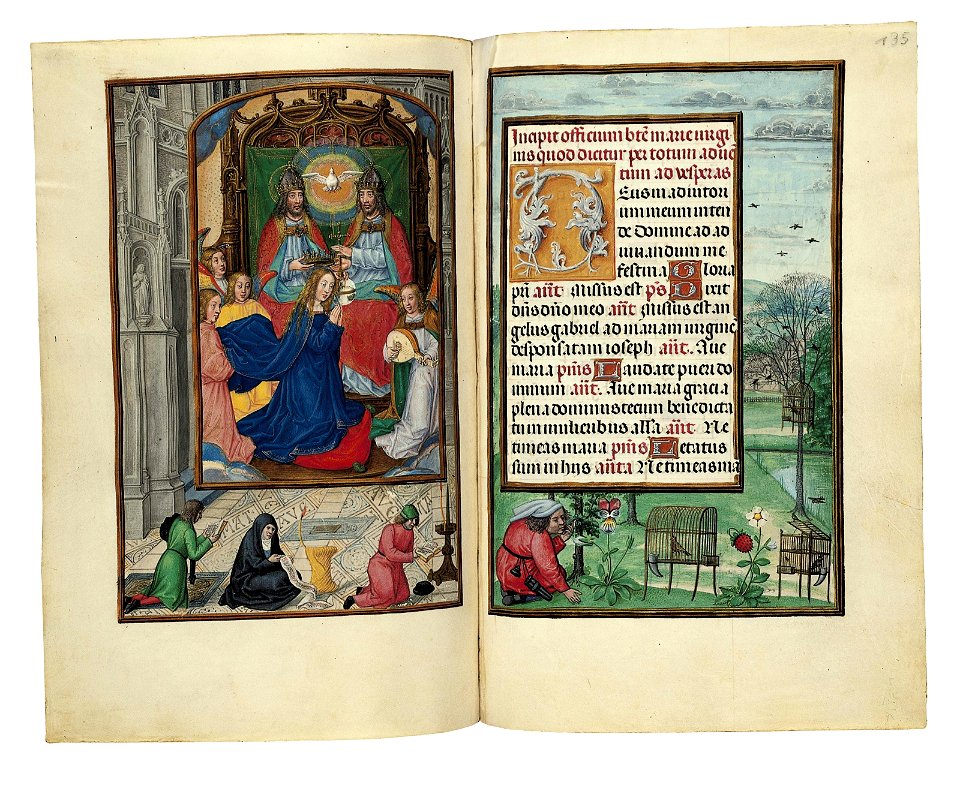 135
Incipit officium bte marie virgi
nis quod dicitur per totum adue
tum ad vesperas
Deus in adiutori
um meum inten
de Domine ad ad
iuuandum me
festina Gloria
pri añt Missus est ps Dixit
dñs dño meo añt Missus est an
gelus gabriel ad mariam virgine
desponsatam ioseph añt. Aue
maria psms Laudate pueri do
minum añt. Aue maria gracia
plena dominus tecum benedicta
tu in mulieribus alla añt Ne
timeas maria psms Letatus
sum in hijs añta Ne timeas ma